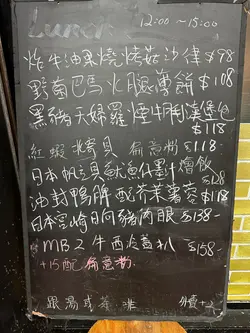 Lunch 12:00 ~ 15:00
炸牛油果燒烤菇沙律 $98
野菌巴馬火腿薄餅 $108
黑豬天婦羅煙牛肉漢堡包
$118
紅蝦 帶 貝 扁意粉 $118-
日本帆立貝魷魚仔墨汁燴飯
$128
油封鴨髀配芥末薯蓉 $118
日本宮崎日向豬肉眼 $138-
MB2牛西冷蓋扒 $158-
+15配扁意粉
跟湯或茶啡